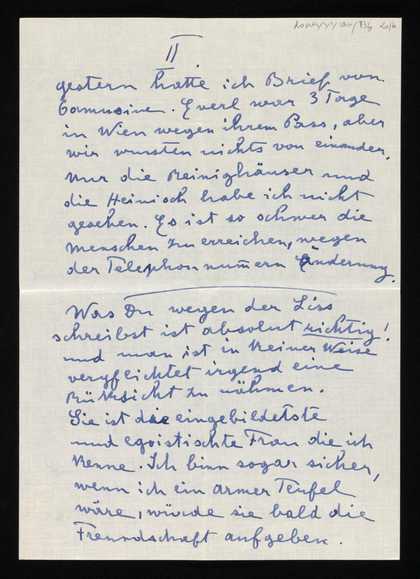 II.
gestern hatte ich Brief von
. Everl war 3 Tage
in Wien wegen ihrem Pass, aber
wir wusten nichts von einander,
nur die Reinighäuser und
die Heinisch habe ich nicht
gesehen. Es ist so schwer die
Menschen zu erreichen, wegen
der Telephonnumern Änderung.
Was Du wegen der Liss
schreibst ist absolut richtig!
und man ist in keiner Weise
verpflichtet irgend eine
Rüksicht zu nöhmen.
Sie ist die eingebildetste
und egoistischte Frau die ich
kenne. Ich binn sogar sicher,
wenn ich ein armer Teufel
wäre, würde sie bald die
Freundschaft aufgeben.